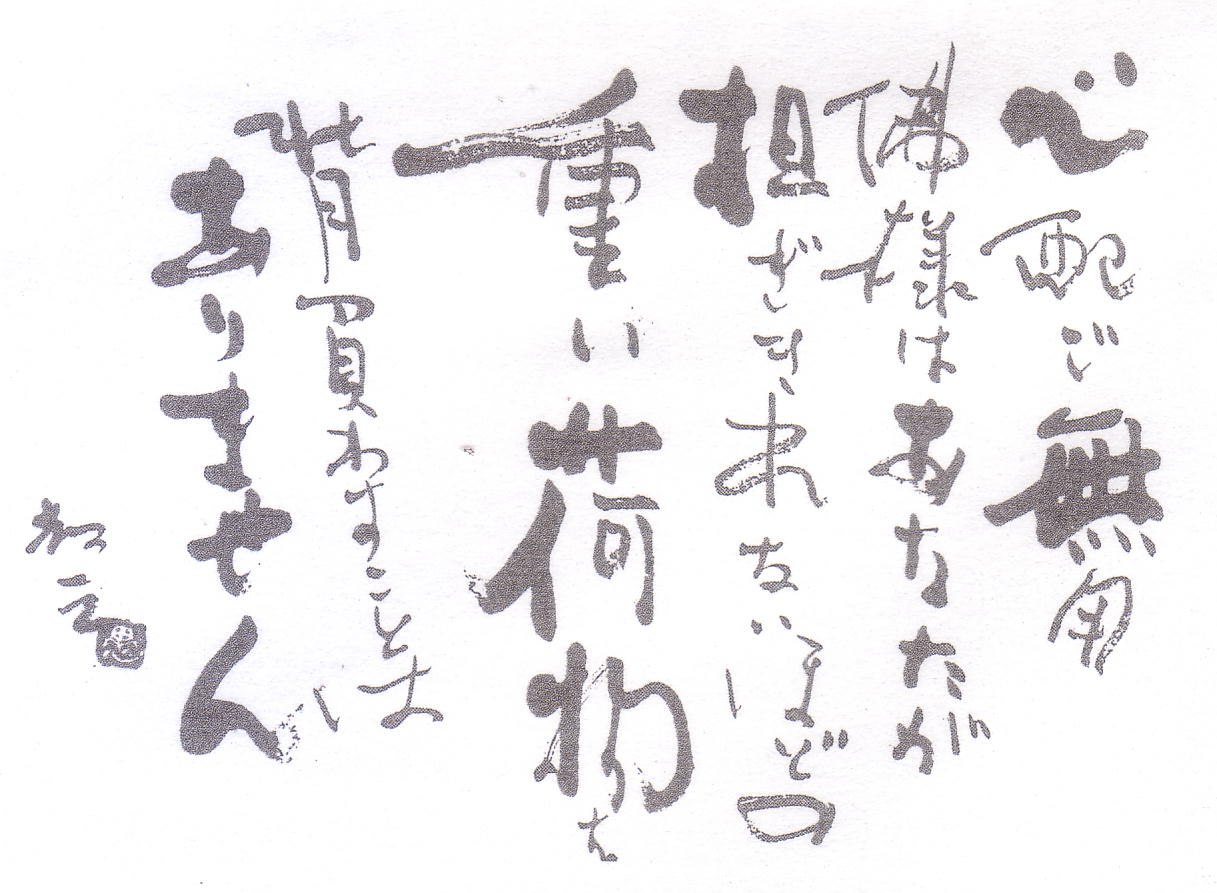 心配ご無用
佛様はあなたが
担ぎきれないほどの
重い荷物を
背負わすことは
ありません